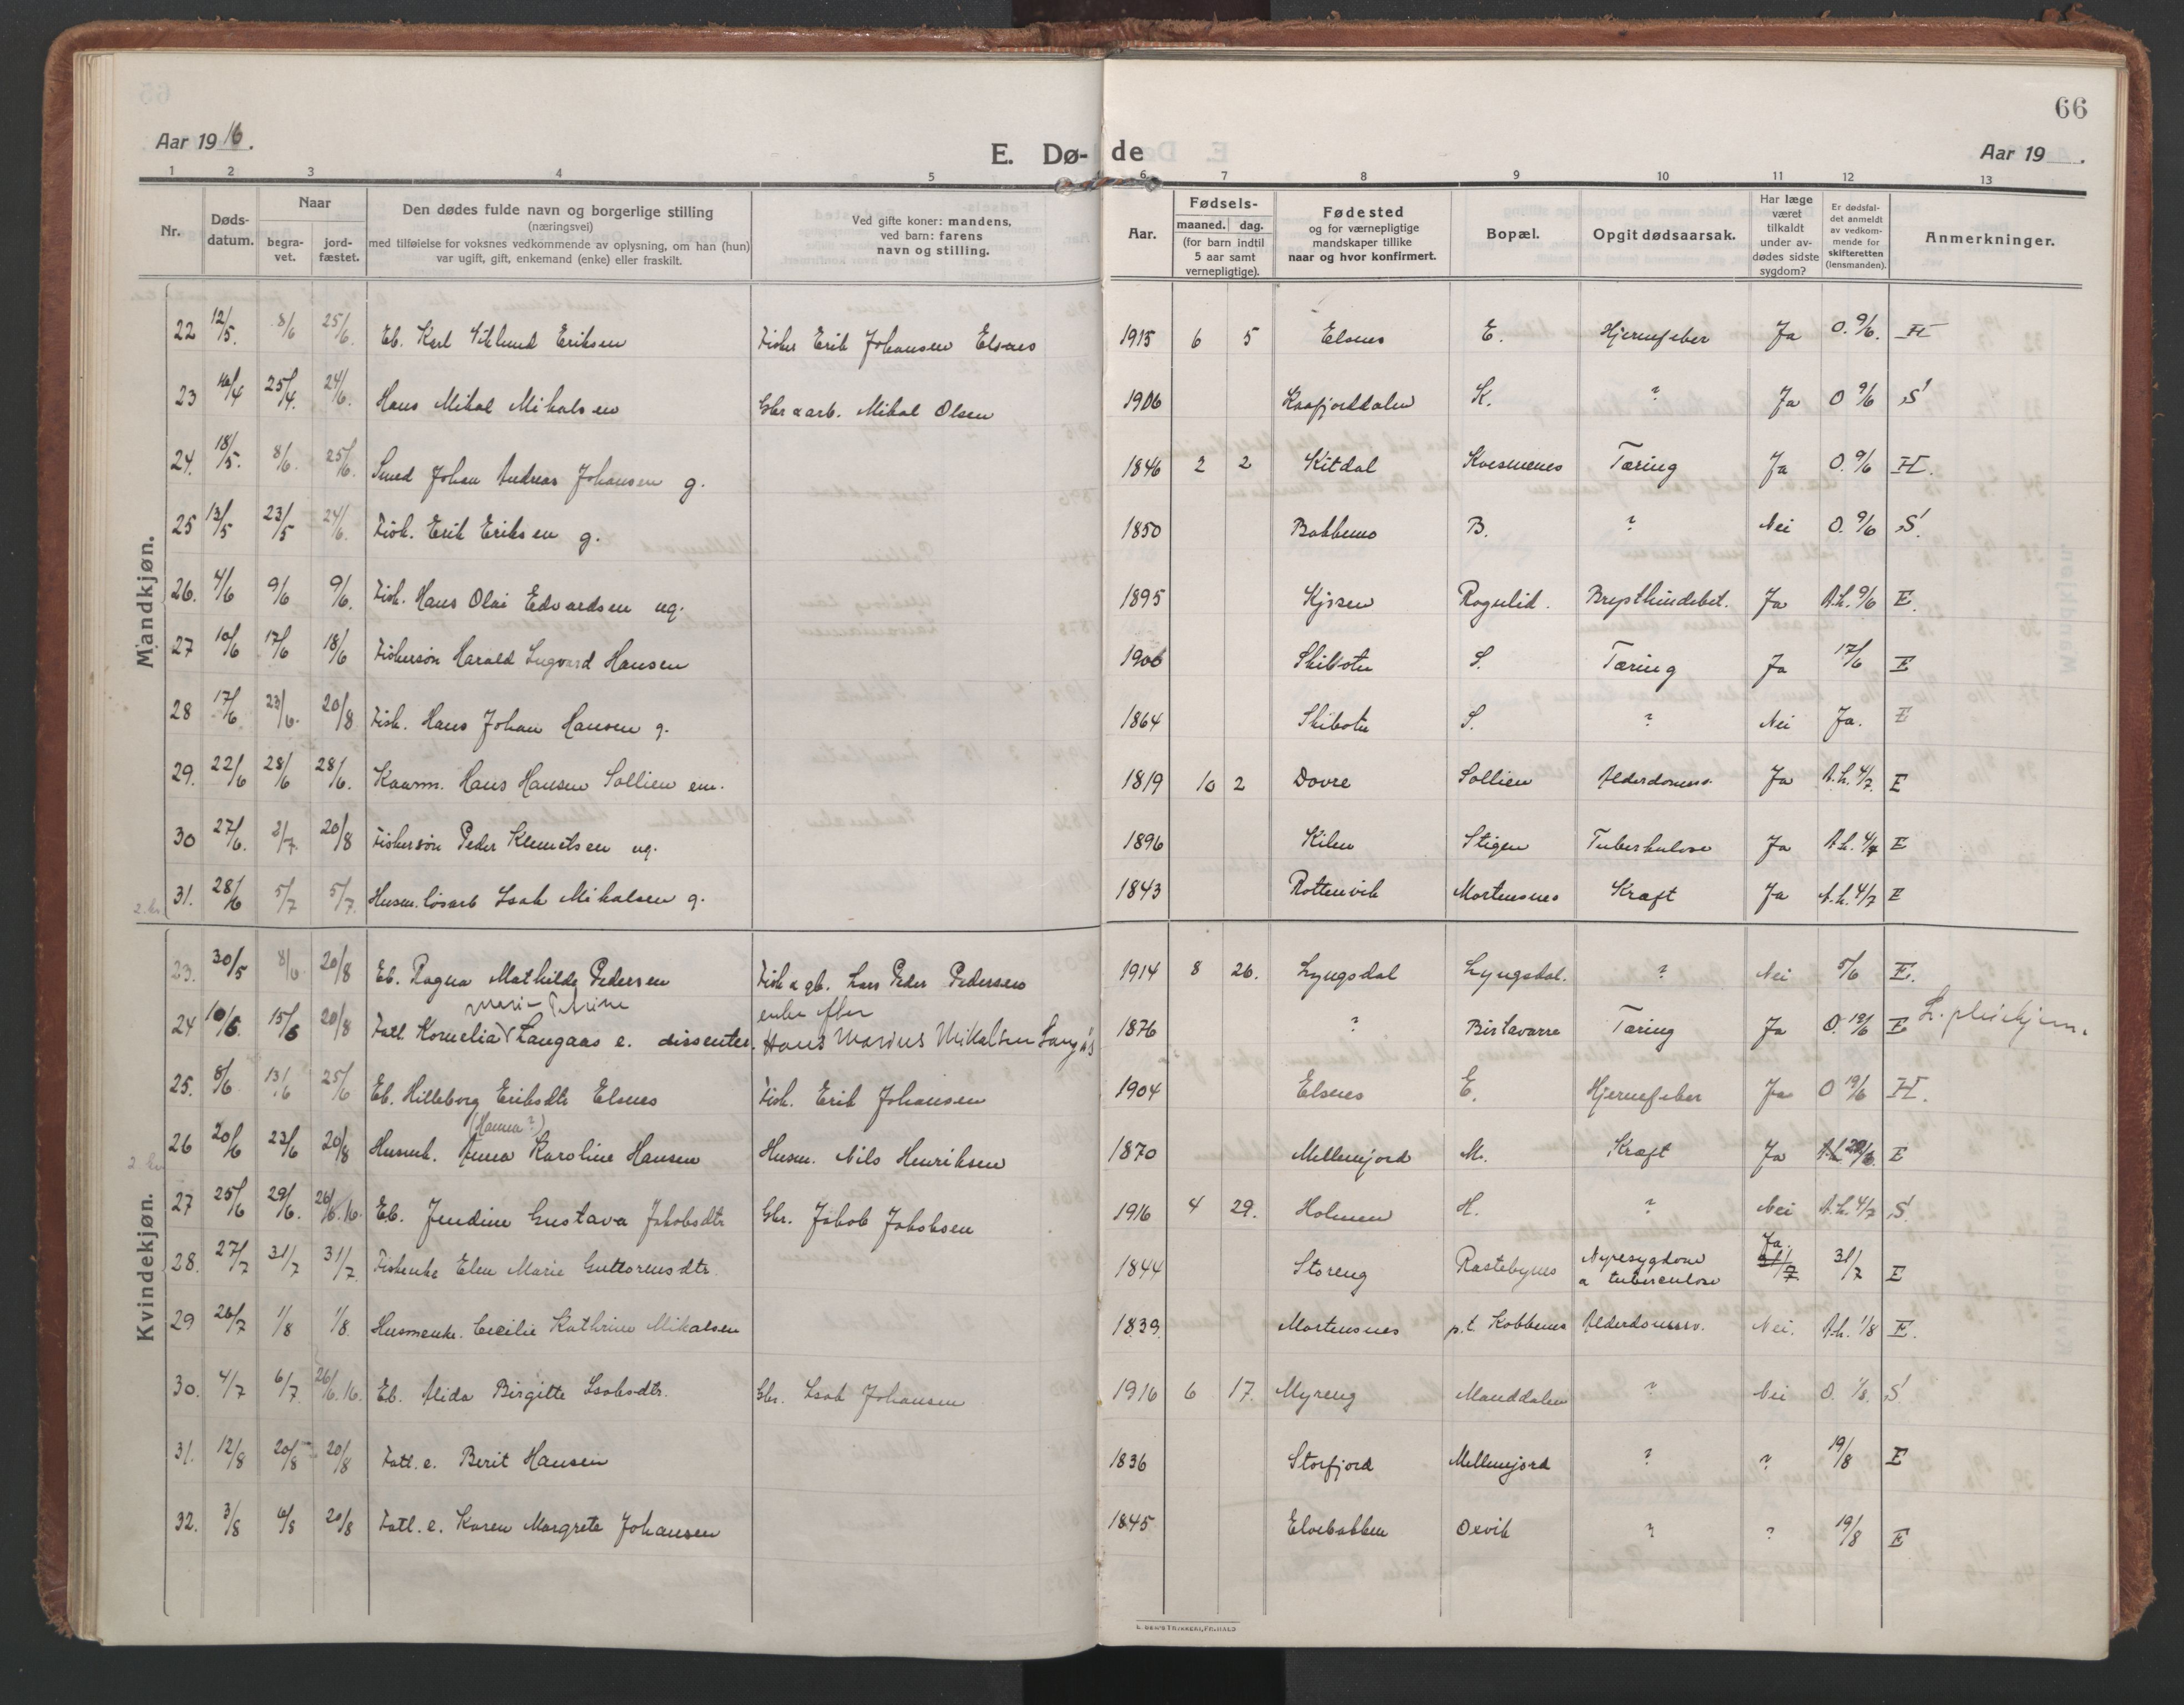 66
Aar 1916.
E. Dø-de
Aar 19 .
1 2 3 4 5 6 7 8 9 10 11 12 13
Nr.
Døds-
datum.
Naar
begra-
vet.
jord-
fæstet.
Den dødes fulde navn og borgerlige stilling
(næringsvei)
med tilføielse for voksnes vedkommende av oplysning, om han (hun)
var ugift, gift, enkemand (enke) eller fraskilt.
Ved gifte koner: mandens,
ved barn: farens
navn og stilling.
Aar.
Fødsels-
maaned. dag.
(for barn indtil
5 aar samt
vernepligtige).
Fødested
og for værnepligtige
mandskaper tillike
naar og hvor konfirmert.
Bopæl.
Opgit dødsaarsak.
Har læge
været
tilkaldt
under av-
dødes sidste
sygdom?
Er dødsfal-
det anmeldt
av vedkom-
mende for
skifteretten
(lensmanden).
Anmerkninger.
Mandkjøn.
22 12/5. 8/6 25/6. Eb. Karl Eriksen Fisker Erik Johansen Elsnes 1915 6 5 Elsnes E. Hjernefeber Ja O. 9/6. H
23 25/4. 24/6. Hans Mikal Mikalsen Gbr & arb. Mikal Olsen 1906 Kaafjorddalen K. ? Ja O 9/6 S
24. 18/5. 8/6. 25/6. Smed Johan Andreas Johansen g. 1846 2 2 Kitdal Kvesmenes Tæring Ja O. 9/6 H.
25 13/5 23/5 24/6. Fisk. Erik Eriksen g. 1850 B. ? Nei O. 9/6 S
26. 4/6 9/6 9/6. Fisk. Hans Olai Edvardsen ug. 1895 Kjosen Rognlid. Brysthindebet. Ja A.h. 9/6 E.
27 10/6 17/6 18/6 Fiskersøn Harald Ingvard Hansen 1906 Skibotn S. Tæring Ja 17/6 E
28 17/6 23/6. 20/8 Fisk. Hans Johan Hansen g. 1864 Skibotn S. ? Nei Ja. E
29. 22/6 28/6 28/6. Kaarm. Hans Hansen Sollien em. 1819 10 2 Dovre Sollien Alderdomssv. Ja A.h. 4/7. E
30 27/6. 2/7. 20/8 Fiskersøn Peder Klemetsen ug. 1896 Kilen Stigen Tuberkulose Ja A.h. 4/7 E
2. kr. 31. 28/6 5/7 5/7. Husm. løsarb Isak Mikalsen g. 1843 Rottenvik Mortensnes Kræft Ja A.h. 4/7 E
Kvindekjøn.
23. 30/5 8/6 20/8 Eb. Ragna Mathilde Pedersen Fisk & gb. Lars Peder Pedersen 1914 8 26. Lyngsdal Lyngsdal. ? Nei 5/6 E.
Marie Petrine enke efter
24 10/6. 15/6 20/8 Fatl. Kornelia Langaas e. dissenter. Hans Marius Mikalsen Langås 1876 ? Birtavarre Tæring Ja O. 19/6 E L. pleiehjem.
25. 8/6 13/6 25/6 Eb. Hilleborg Eriksdtr Elsnes Fisk. Erik Johansen 1904 Elsnes E. Hjernefeber Ja O 19/6 H.
(Hanna?)
26 20/6 23/6 20/8 Husmk. Anna Karoline Hansen Husm. Nils Henriksen 1870 Mellemjord M. Kræft Ja E
27 25/6 29/6. 26/6.16. Eb. Jendine Gustava Jakobsdtr Gbr. Jakob Jakobsen 1916 4 29. Holmen H. ? Nei A.h. 4/7 S.
28. 27/7 31/7 31/7. Fiskenke Elen Marie Guttormsdtr. 1844 Storeng Rastebynes Nyresygdom & tuberculose Ja. 31/7. 31/7 E
29 26/7 1/8 1/8. Husmenke. Cecilie Kathrine Mikalsen 1839. Mortensnes p.t. Kobbenes Alderdomssv. Nei. A.h. 1/8 E.
30. 4/7 6/7. 26/6.16. Eb. Alida Birgitte Isaksdtr. Gbr. Isak Johansen 1916 6 17. Myreng Manddalen ? Nei O. 1/8. S
31. 12/8 20/8 20/8 Fatl. e. Berit Hansen 1836 Storfjord Mellemjord ? ? 19/8 E
32. 3/8 6/8 20/8 Fatl. e. Karen Margrete Johansen 1845 Elvebakken Oxvik ? ? 19/8 E